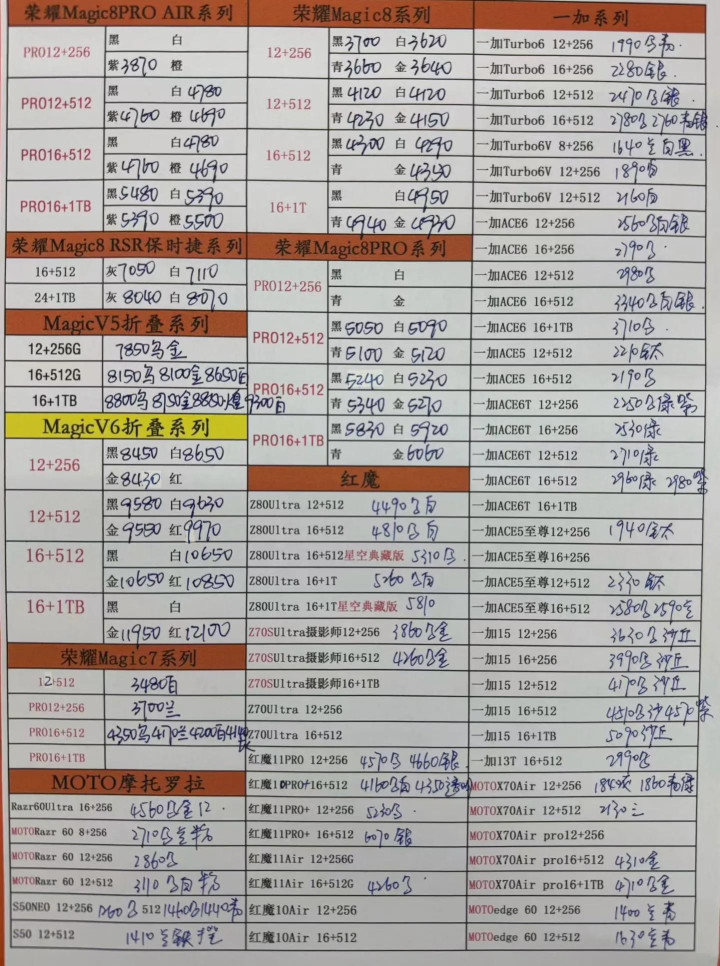 荣耀Magic8PRO AIR系列
PRO12+256
黑 白
紫3870 橙
PRO12+512
黑 白4780
紫4760 橙4690
PRO16+512
黑 白4780
紫4760 橙4690
PRO16+1TB
黑5480 白5390
紫5390 橙5500
荣耀Magic8 RSR保时捷系列
16+512 灰7050 白7110
24+1TB 灰8040 白8070
MagicV5折叠系列
12+256G 7850乌金
16+512G 8150乌 8100金 8650白
16+1TB 8800乌 8150金 8850煌 9300白
MagicV6折叠系列
12+256
黑8450 白8650
金8430 红
12+512
黑9580 白9630
金9550 红9970
16+512
黑 白10650
金10650 红10850
16+1TB
黑 白
金11950 红12100
荣耀Magic7系列
12+512 3480白
PRO12+256 3700兰
PRO16+512 4350乌 4170兰 4200白 4140
PRO16+1TB
MOTO摩托罗拉
Razr60Ultra 16+256 4560乌金12.
MOTORazr 60 8+256 2710乌
MOTORazr 60 12+256 2860乌
MOTORazr 60 12+512 3110乌白
S50NEO 12+256 乌 512 1460乌 1440
S50 12+512 1410
荣耀Magic8系列
12+256
黑3700 白3620
青3660 金3640
12+512
黑4120 白4120
青4230 金4150
16+512
黑4300 白4290
青 金4340
16+1T
黑 白4950
青4940 金4930
荣耀Magic8PRO系列
PRO12+256
黑 白
青 金
PRO12+512
黑5050 白5090
青5100 金5120
PRO16+512
黑5240 白5230
青5340 金5270
PRO16+1TB
黑5830 白5920
青 金6060
红魔
Z80Ultra 12+512 4490乌白
Z80Ultra 16+512 4810乌白
Z80Ultra 16+512星空典藏版 5310乌.
Z80Ultra 16+1T 5260乌白
Z80Ultra 16+1T星空典藏版 5810
Z70SUltra摄影师12+256 3860乌金
Z70SUltra摄影师16+512 4260乌金
Z70SUltra摄影师16+1TB
Z70Ultra 12+256
Z70Ultra 16+512
红魔11PRO 12+256 4570乌 4660银.
红魔10PRO+16+512 4160乌白 4350透
红魔11PRO+ 12+256 5230乌.
红魔11PRO+ 16+512 6070银
红魔11Air 12+256G
红魔11Air 16+512G 4260乌.
红魔10Air 12+256
红魔10Air 16+512
一加系列
一加Turbo6 12+256 1990乌青.
一加Turbo6 16+256 2280银.
一加Turbo6 12+512 2470乌银.
一加Turbo6 16+512 2780乌 2760青银
一加Turbo6V 8+256 1640兰白黑.
一加Turbo6V 12+256 1890白
一加Turbo6V 12+512 2160白
一加ACE6 12+256 2560乌白银
一加ACE6 16+256 2790乌.
一加ACE6 12+512 2980乌
一加ACE6 16+512 3340乌白银.
一加ACE6 16+1TB 3710乌.
一加ACE5 12+512 2210钛
一加ACE5 16+512 2190乌
一加ACE6T 12+256 2250乌绿紫
一加ACE6T 16+256 2530绿
一加ACE6T 12+512 2710绿
一加ACE6T 16+512 2960绿 2980紫
一加ACE6T 16+1TB
一加ACE5至尊12+256 1940钛
一加ACE5至尊16+256
一加ACE5至尊12+512 2330钛
一加ACE5至尊16+512 2580乌 2590兰
一加15 12+256 3630乌沙丘
一加15 16+256 3990乌沙丘
一加15 12+512 4170乌沙丘
一加15 16+512 4510乌沙 4570紫
一加15 16+1TB 5090沙丘
一加13T 16+512 2990乌
MOTOX70Air 12+256 1840灰 1860青绿
MOTOX70Air 12+512 2130三
MOTOX70Air pro12+256
MOTOX70Air pro16+512 4310金
MOTOX70Air pro16+1TB 4710乌金
MOTOedge 60 12+256 1400兰青
MOTOedge 60 12+512 1630兰青